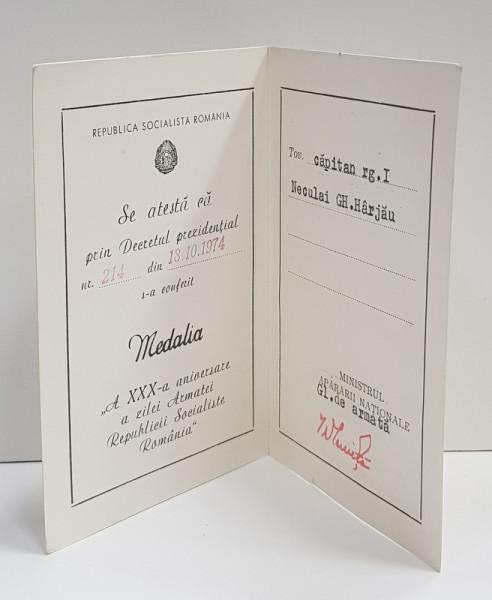 REPUBLICA SOCIALISTA ROMÂNIA
Se atestă că
prin Decretul prezidențial
nr. 214 din 18.10.1974
s-a conferit
Medalia
„A XXX-a aniversare
a zilei Armatei
Republicii Socialiste
România"
Tov. căpitan rg.I
Neculai GH.Hârjău
MINISTRUL
APĂRĂRII NAȚIONALE
Gl.de armată